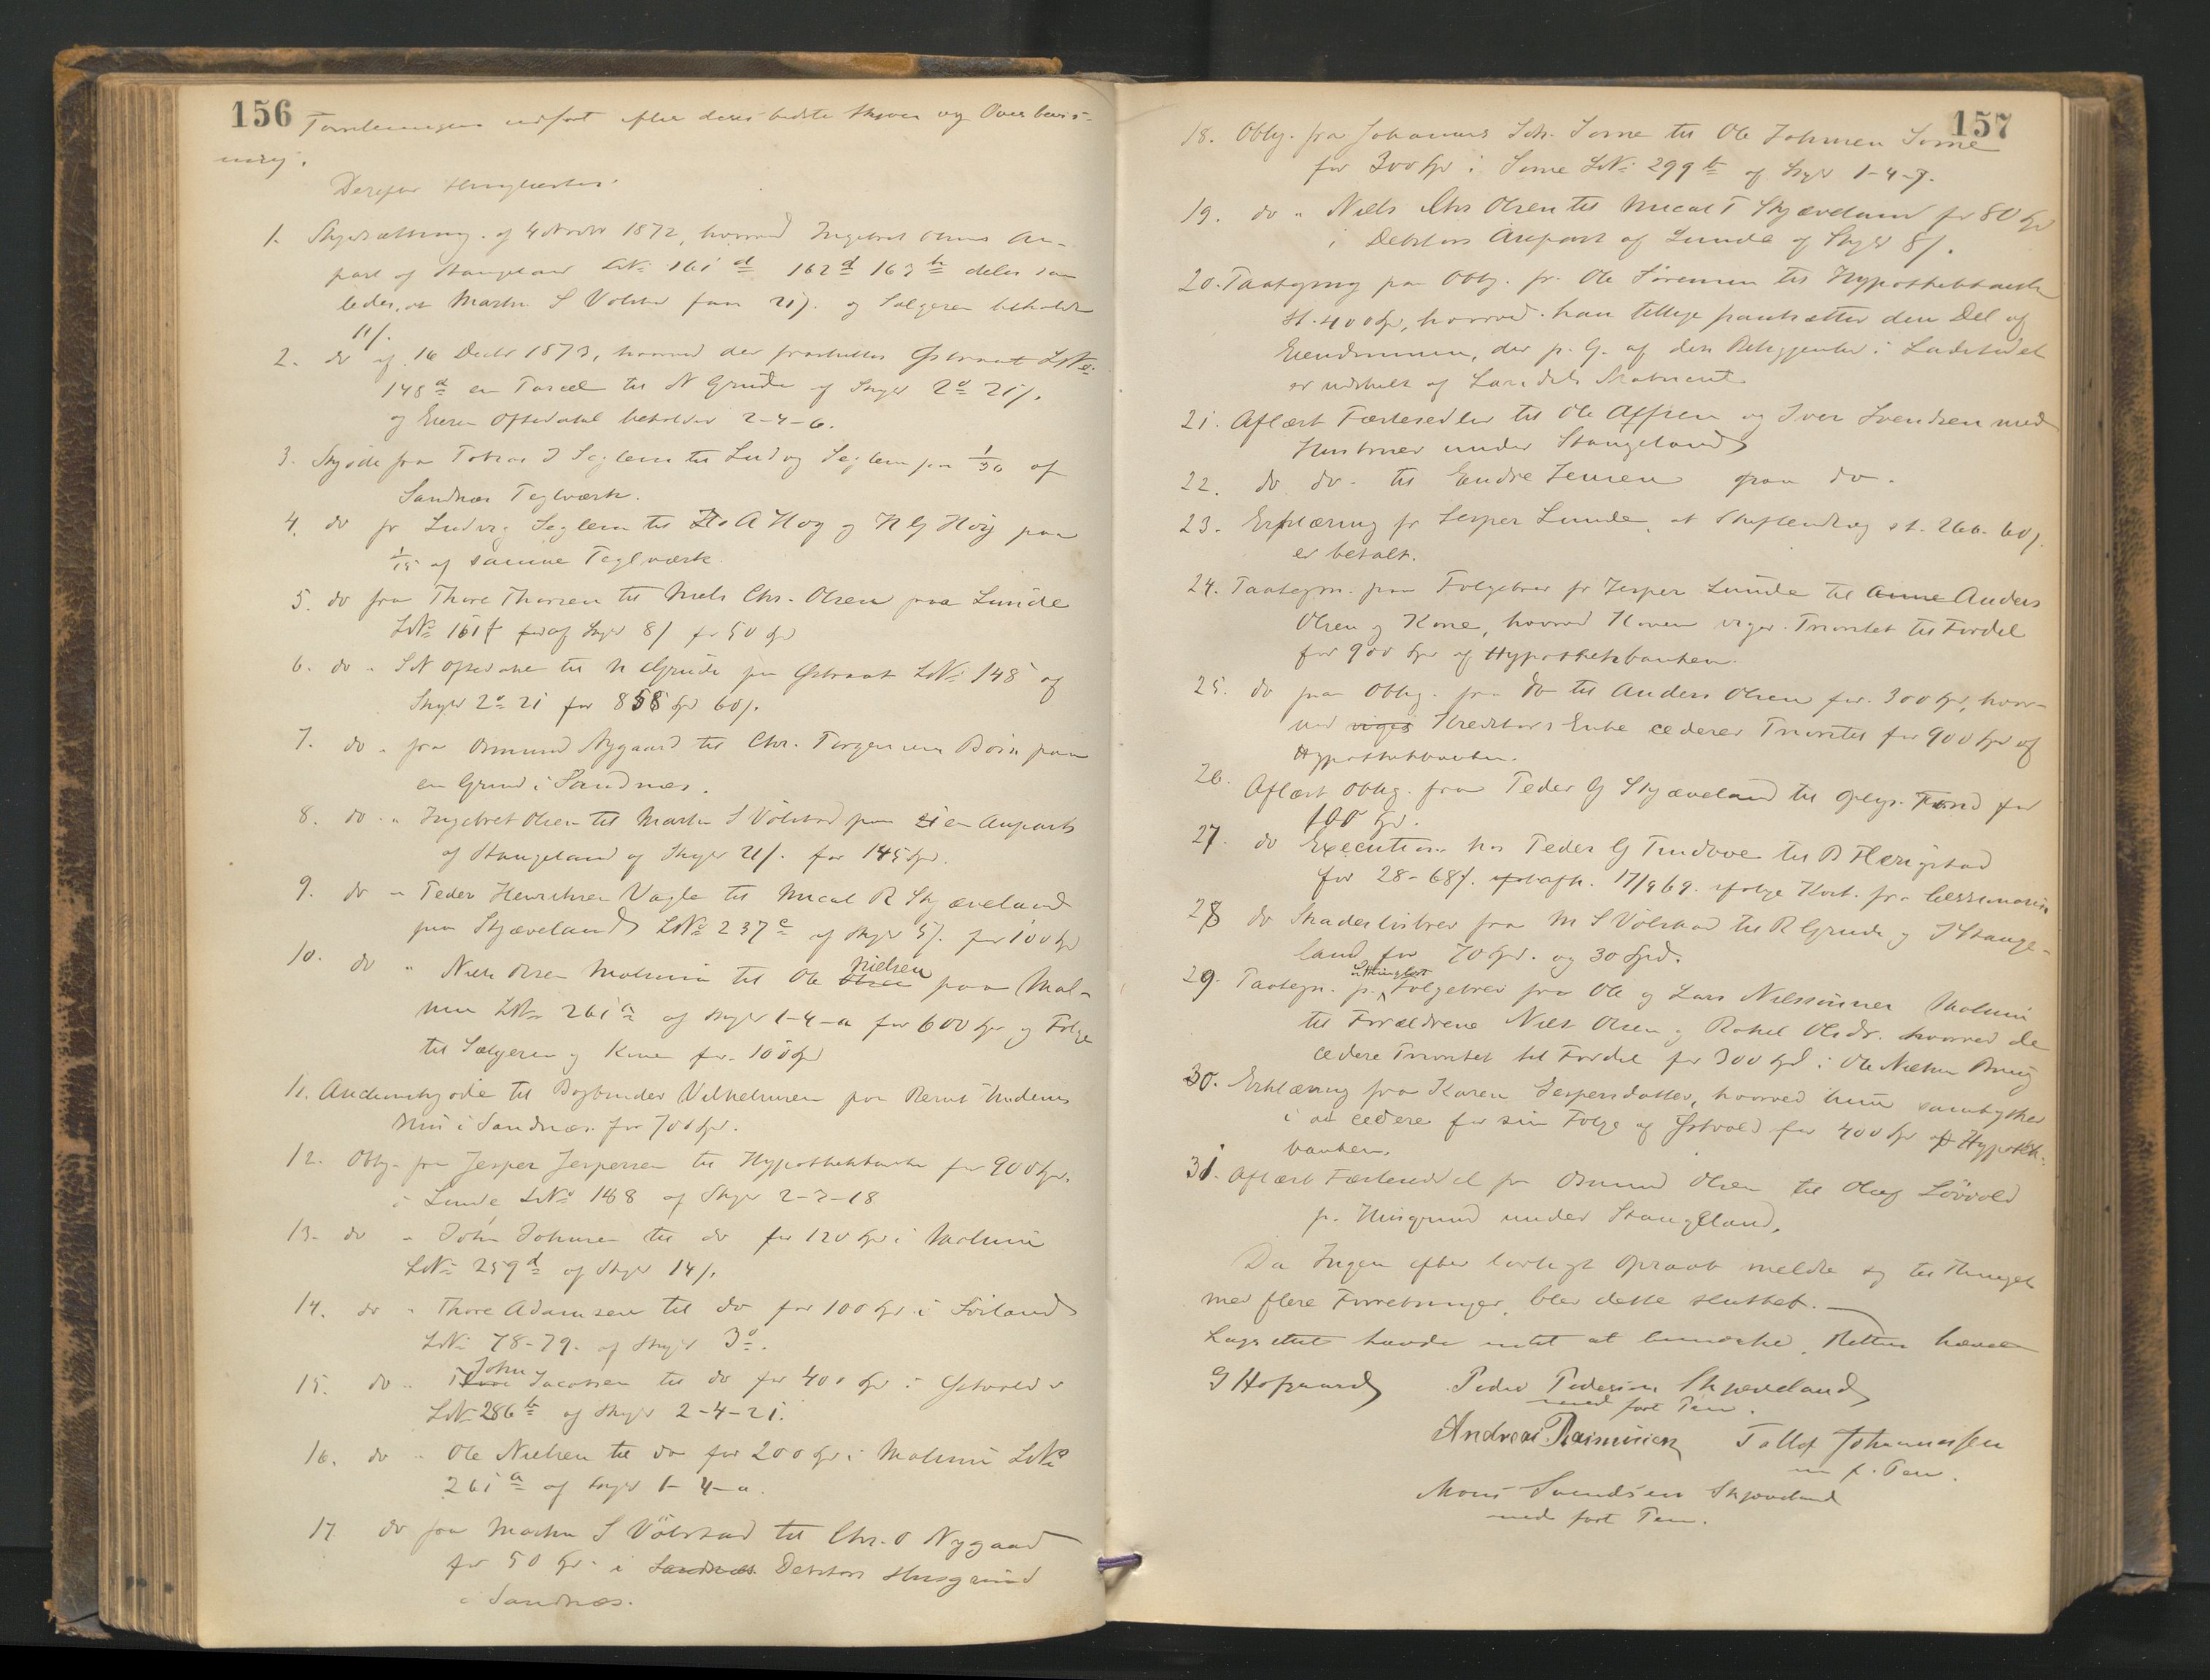 156
Forretningen udført efter deres bedste Skjøn og Overbevis-
ning.
Derefter thinglæstes:
1. Skyldsætning af 4 Novbr 1872, hvorved Ingebret Olsens An-
part af Stangeland LNo 161 d 162 d 163 b deles saa
ledes, at Martin S Völstad faar 21/. og Sælgeren beholder
11/.
2. do af 16 Decbr 1873, hvorved der fraskilles Østraat LNo
148 d en Parcel til N Grude af Skyld 2 o 21/.
og Eieren Oftedahl beholder 2-4-6.
3. Skjøde fra Tobias J Seglem til Ludvig Seglem paa 1/30 af
Sandnæs Teglværk.
4. do fr Ludvig Seglem til A Høg og H G Höy paa
1/15 af samme Teglværk.
5. do fra Thore Thorsen til Niels Chr. Olsen paa Lunde
LNo 151 f af Skyld 8/ for 50 Spd
6. do " S N Oftedahl til N Grude paa Østraat LNo 148 af
Skyld 2 o 21 for 858 Spd 60/.
7. do " fra Osmund Nygaard til Chr. Torgersens Börn paa
en Grund i Sandnæs.
8. do " Ingebret Olsen til Martin S Völstad paa en Anparts
af Stangeland af Skyld 21/. for 145 Spd.
9. do " Peder Henriksen Vagle til Mical R Skjæveland
paa Skjæveland LNo 237 c af Skyld 5/. for 100 Spd
10. do " Niels Olsen Malmin til Ole Olsen Nielsen paa Mal-
min LNo 261 a af Skyld 1-4-a for 600 Spd og Folge
til Sælgeren og Kone for 100 Spd
11. Auctionskjøde til Bogbinder Vilhelmsen paa Bernt Undems
Huus i Sandnæs for 700 Spd.
12. Oblig. fra Jesper Jespersen til Hypothekbanken for 900 Spd.
i Lunde LNo 148 af Skyld 2-3-18
13. do " John Johnsen til do for 120 Spd i Malmin
LNo 259 d af Skyld 14/.
14. do " Thore Adamsen til do for 100 Spd i Soiland
LNo 78-79. af Skyld 3 o.
15. do " John Jacobsen til do for 400 Spd i Østvold
LNo 286 b af Skyld 2-4-21.
16. do " Ole Nielsen til do for 200 Spd i Malmin LNo
261 a af Skyld 1-4-a.
17. do fra Martin S Völstad til Chr. O Nygaard
for 50 Spd. i Sandnæs Debitors Husgrund
i Sandnæs.
157
18. Oblig. fra Johannes Joh. Some til Ole Johnsen Some
for 300 Spd i Some LNo 299 b af Skyld 1-4-9.
19. do " Niels Chr Olsen til Mical T Skjæveland for 80 Spd
i Debitors Anpart af Lunde af Skyld 8/.
20. Paategning paa Oblig. fr. Ole Sörensen til Hypothekbanken
st. 400 Spd, hvorved han tillige pantsætter den Del af
Eiendommen, der p. G. af dens Beliggenhed i Ladestedet
er udskilt af Landets Matricul.
21. Aflæst Fæstesedler til Ole Alfsen og Iver Svendsen med
Hustruer under Stangeland
22. do do. til Endre Jensen paa do.
23. Erklæring fr Jesper Lunde, at Skiftendlæg st. 266. 60/.
er betalt.
24. Paategn. paa Folgebrev fr Jesper Lunde til Anne Anders
Olsen og Kone, hvorved Konen viger Prioritet til Fordel
for 900 Spd af Hypothekbanken.
25. do paa Oblig. fra do til Anders Olsen for 300 Spd, hvor-
ved viges Kreditors Enke cederer Prioritet for 900 Spd af
Hypothekbanken.
26. Aflæst Oblig. fra Peder G Skjæveland til Oplys. Fond for
100 Spd.
27. do Execution hos Peder G Tindove til B Hörigstad
for 28-68/. afh. 17/9 69. ifølge Kont. fr. Cessionarius
28 do Skadesløsbrev fra M S Völstad til R Grude og J Stange-
land for 70 Spd. og 30 Spd.
29. Paategn. p. uthinglæst Folgebrev fra Ole og Lars Nilssönner Malmin
til Forældrene Niels Olsen og Rakel Olsdr. hvorved de
cedere Prioritet til Fordel for 300 Spd i Ole Nielsens Brug
30. Erklæring fra Karen Jespersdatter, hvorved hun samtykker
i at cedere for sin Folge af Østvold for 400 Spd af Hypothek-
banken.
31. Aflæst Fæsteseddel fra Osmund Olsen til Oluf Lövvold
p. Husgrund under Stangeland.
Da Ingen efter lovligt Opraab meldte sig til Thinget
med flere Forretninger, blev dette sluttet.
Lagrettet havde intet at bemærke. Retten hævet
G Hofgaard Peder Pedersen Skjæveland
med ført Pen.
Andreas Rasmusen Tollof Johannessen
m. f. Pen.
Mons Svendsen Skjæveland
med ført Pen.